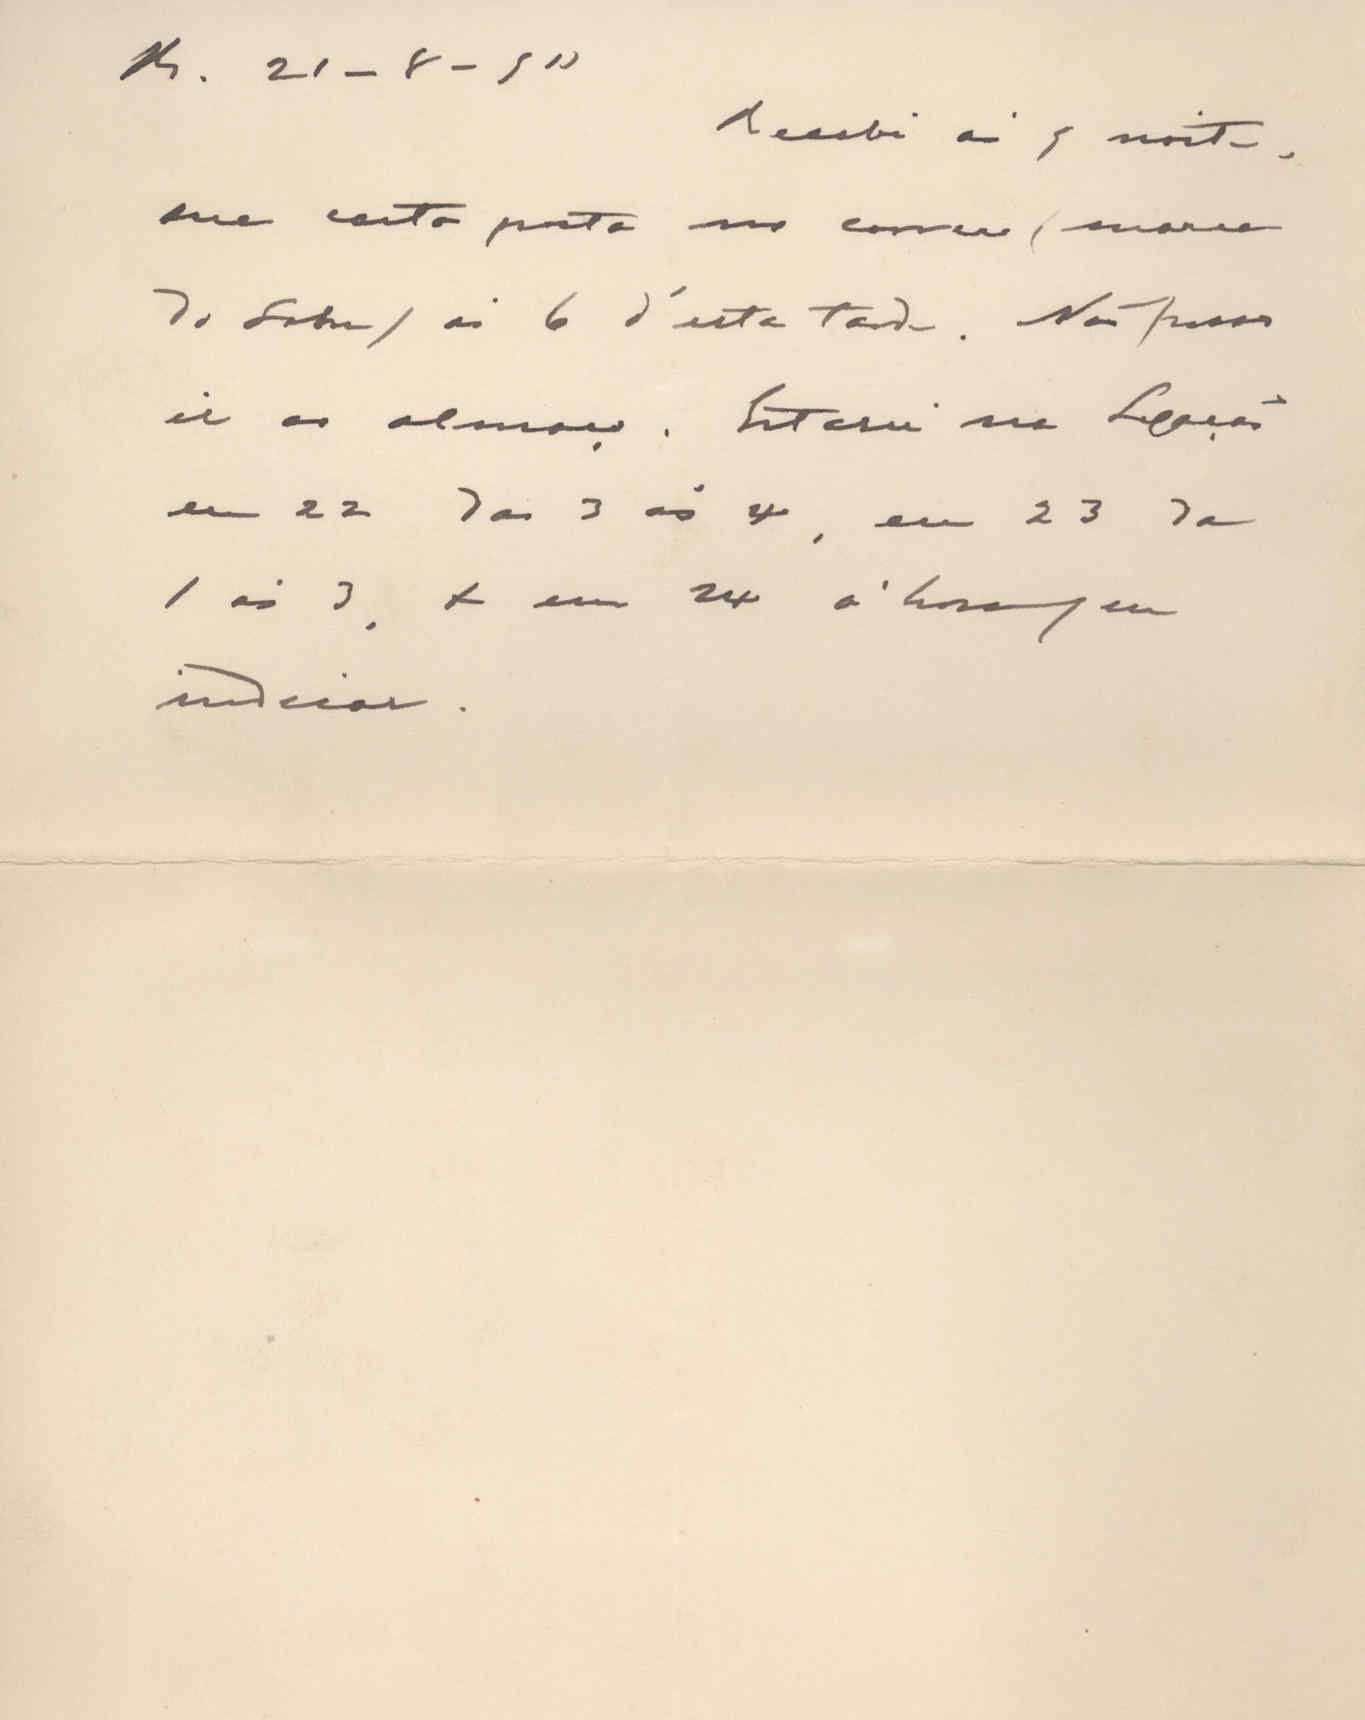 21-8-90
Recebi ás 9 noite.
sua carta posta no correio (marca
do sobre) ás 6 d'esta tarde. Não posso
ir ao almoço. Estarei na Legação
em 22 das 3 ás 4, em 23 da
1 ás 3, & em 24 á hora q em
indicar.